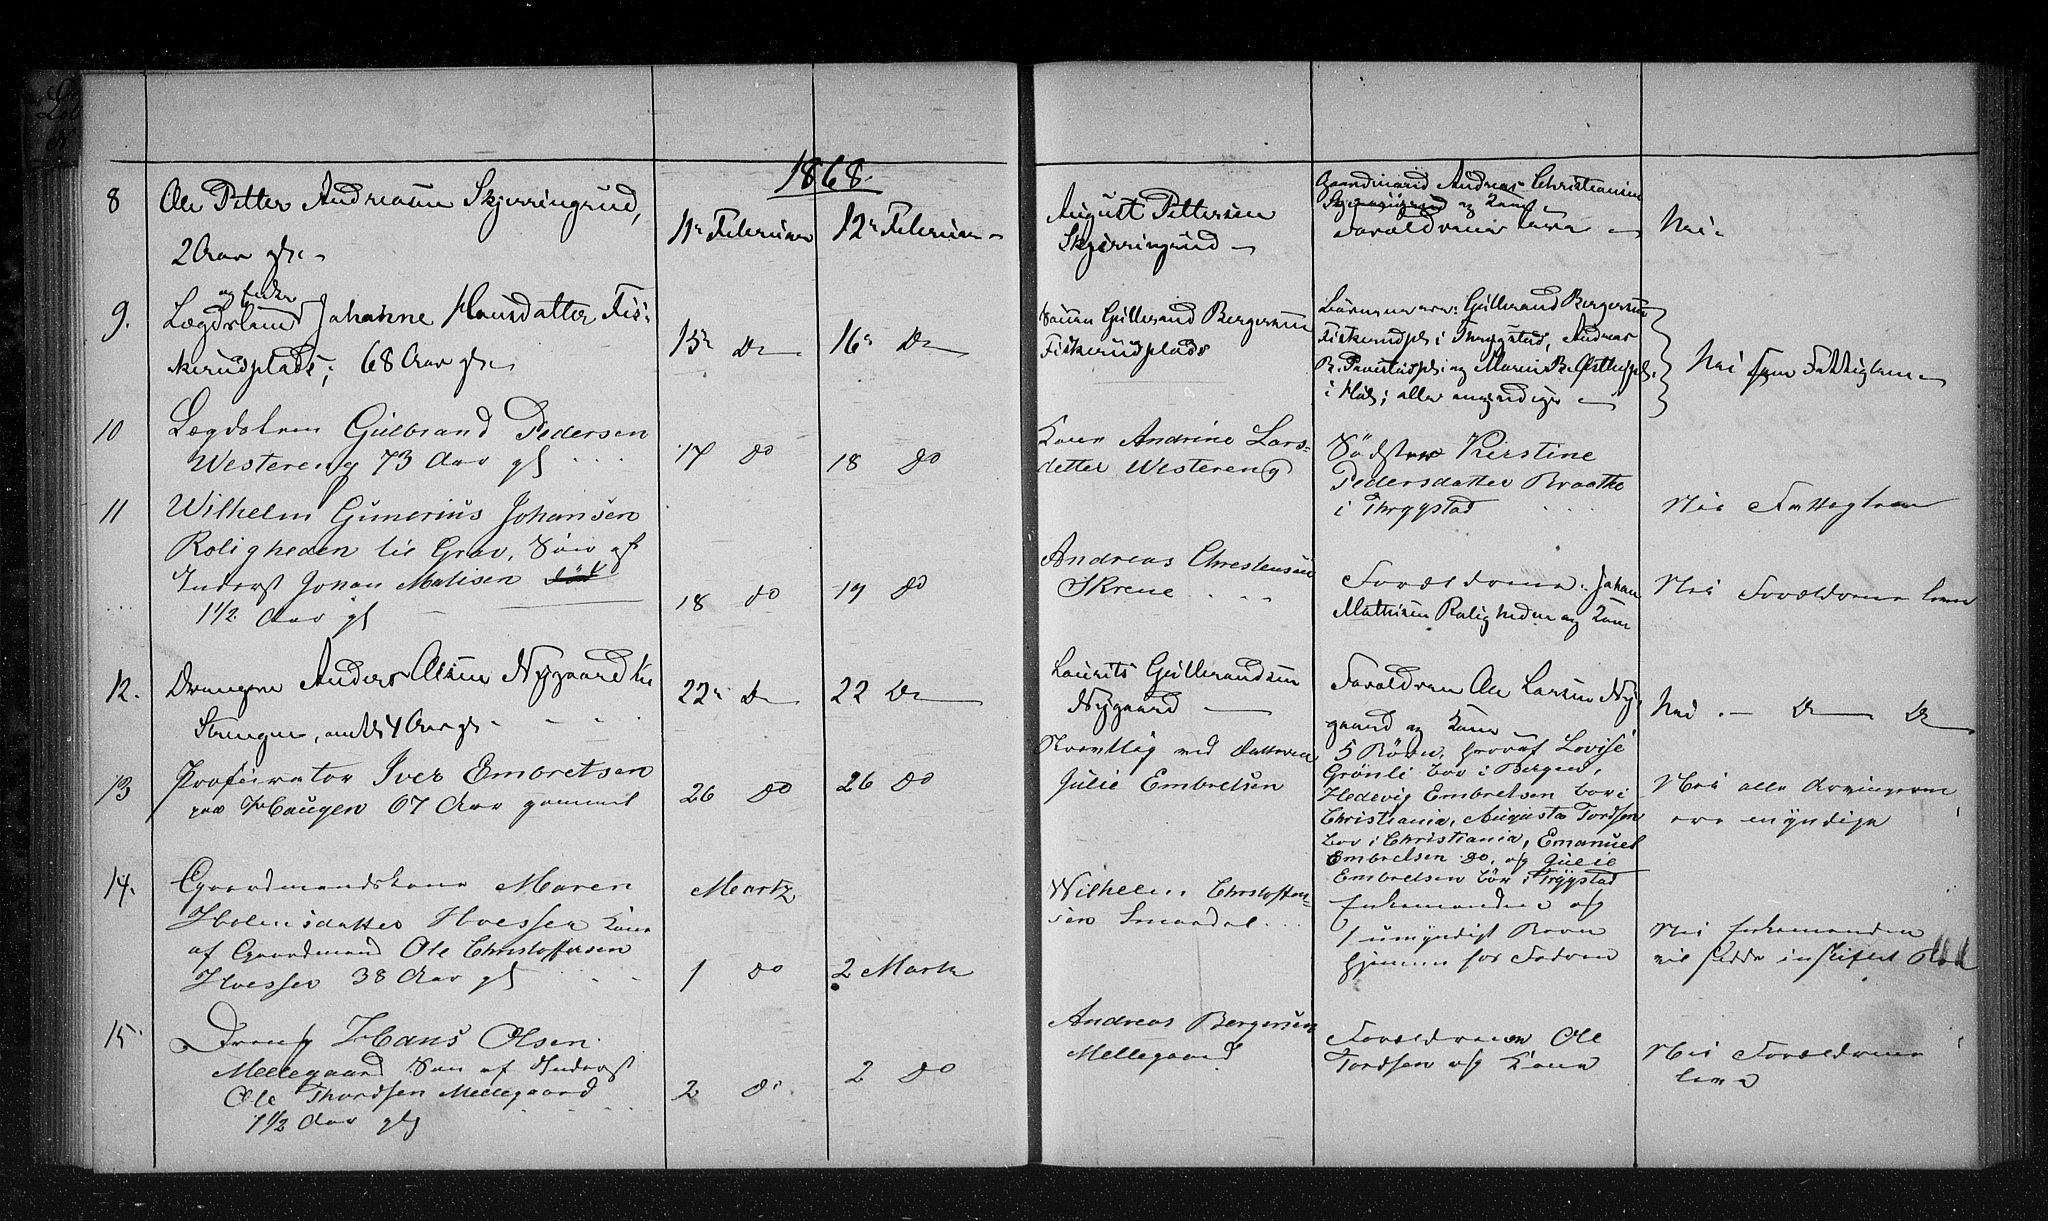 1868.
8
Ole Petter Andreasen Skjerringrud,
2 Aar gl.
11te Februar
12te Februar
August Pettersen
Skjerringrud
Gaardmand Andreas Christiansen
Skjerringrud og Kone
Forældrene leve
Nei.
9.
og Enke
Lægdslem Johanne Hansdatter Fis-
kerudplads; 68 Aar gl.
15de Do
16de Do
Sønnen Gulbrand Bergersen
Fiskerudplads
Børnene ere: Gulbrand Bergersen
Fiskerudpl. i Thrygstad, Andreas
B. pl. og Maren B.
i Høl; alle myndige
Nei Fattiglem
10
Lægdslem Gulbrand Pedersen
Westereng 73 Aar gl
17 do
18 do
Karen Andrine Lars-
datter Westereng
Södster Kirstine
Pedersdatter Braathe
i Thrygstad
Nei Fattiglem
11
Wilhelm Gunerius Johansen
Roligheden lie Grav, Sön af
Inderst Johan Matisen död
1 1/2 Aar gl
18 do
19 do
Andreas Christensen
Skrene
Forældrene Johan
Mathisen Roligheden og Kone
Nei Forældrene leve
12.
Drengen Anders Olsen Nygaard
4 Aar gl
22de Do
22 Do
Laurits Gulbrandsen
Nygaard
Forældrene Ole Larsen Ny-
gaard og Kone
Nei. Do Do
13
Prokurator Iver Embretsen
paa Haugen 67 Aar gammel
26 do
26 do
ved Datteren
Julie Embretsen
5 Börn, hvoraf Lovise
Grönli bor i Bergen,
Hedevig Embretsen bor i
Christiania, Augusta Tordsen
bor i Christiania, Emanuel
Embretsen do, og Julie
Embretsen bor i Trygstad
Nei alle Arvingerne
ere myndige
14.
Gaardmandskone Maren
Holmsdatter Hvesser Kone
af Gaardmand Ole Christoffersen
Hvesser 38 Aar gl
Martz
1 do
2 Martz
Wilhelm Christoffer-
sen Smordal
Enkemanden og
1 umyndigt Barn
hjemme hos Faderen
Nei Enkemanden
vil sidde i uskiftet Bo
15.
Dreng Hans Olsen
Mellegaard Sön af Inderst
Ole Thordsen Mellegaard
1 1/2 Aar gl
2 do
2 do
Andreas Bergersen
Mellegaard
Forældrene Ole
Tordsen og Kone
Nei Forældrene
leve